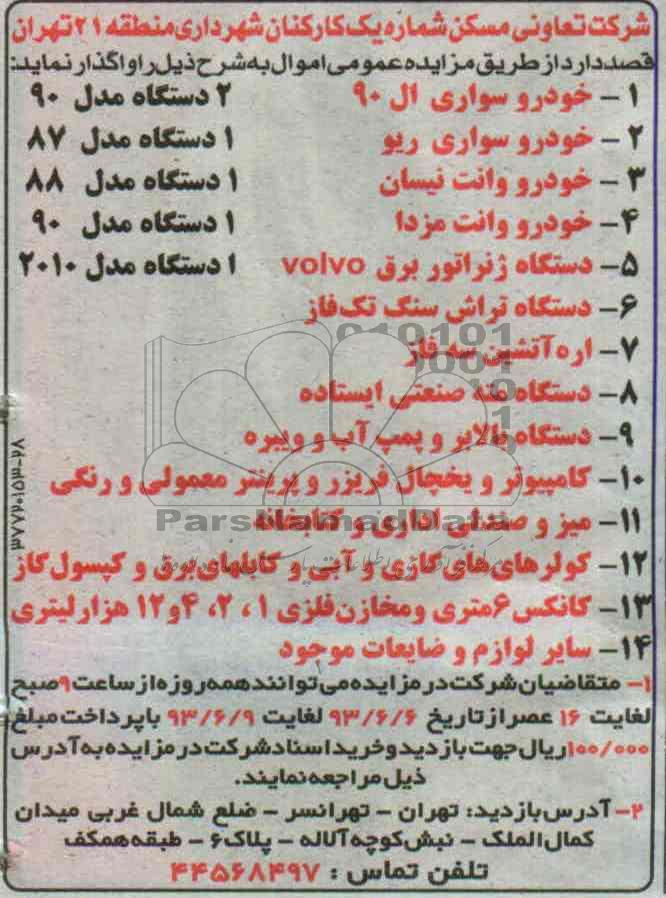 شرکت تعاونی مسکن شماره یک کارکنان شهرداری منطقه ۲۱ تهران
قصد دارد از طریق مزایده عمومی اموال به شرح ذیل را واگذار نماید:
۱- خودرو سواری ال ۹۰ ۲ دستگاه مدل ۹۰
۲- خودرو سواری ریو ۱ دستگاه مدل ۸۷
۳- خودرو وانت نیسان ۱ دستگاه مدل ۸۸
۴- خودرو وانت مزدا ۱ دستگاه مدل ۹۰
۵- دستگاه ژنراتور برق volvo ۱ دستگاه مدل ۲۰۱۰
۶- دستگاه تراش سنگ تک‌فاز
۷- اره آتشین سه فاز
۸- دستگاه مته صنعتی ایستاده
۹- دستگاه بالابر و پمپ آب و ویبره
۱۰- کامپیوتر و یخچال فریزر و پرینتر معمولی و رنگی
۱۱- میز و صندلی اداری و کتابخانه
۱۲- کولرهای های گازی و آبی و کابلهای برق و کپسول گاز
۱۳- کانکس ۶ متری و مخازن فلزی ۱، ۲، ۴ و ۱۲ هزار لیتری
۱۴- سایر لوازم و ضایعات موجود
۱- متقاضیان شرکت در مزایده می‌توانند همه روزه از ساعت ۹ صبح
لغایت ۱۶ عصر از تاریخ ۹۳/۶/۶ لغایت ۹۳/۶/۹ با پرداخت مبلغ
۱۰۰/۰۰۰ ریال جهت بازدید و خرید اسناد شرکت در مزایده به آدرس
ذیل مراجعه نمایند.
۲- آدرس بازدید: تهران - تهرانسر - ضلع شمال غربی میدان
کمال الملک - نبش کوچه آلاله - پلاک ۶ - طبقه همکف
تلفن تماس : ۴۴۵۶۸۴۹۷
ParsNamadData